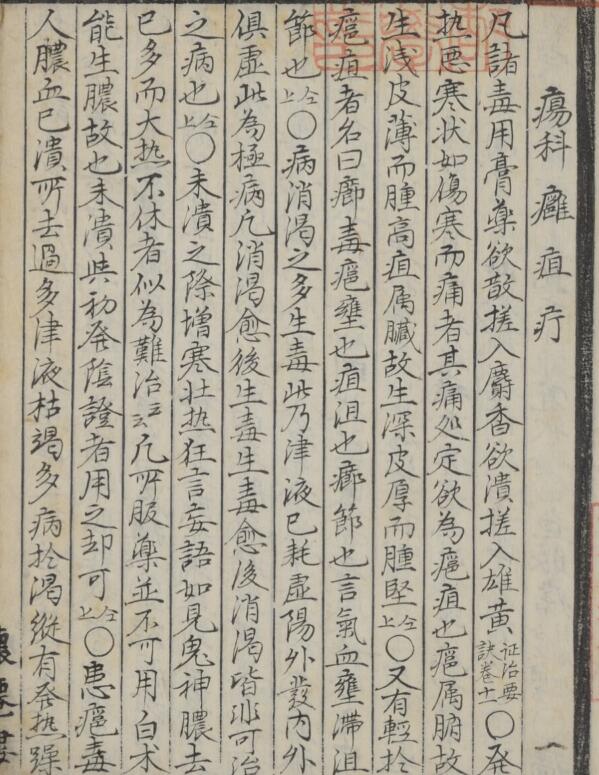 瘍科 癰疽疔
凡諸毒用膏藥欲散搓入麝香欲潰搓入雄黄證治要訣卷十一〇発
热悪寒状如傷寒而痛者其痛処定欲為癰疽也癰属腑故
生浅皮薄而腫高疽属臓故生深皮厚而腫堅仝上〇又有輕於
癰疽者名曰癤毒癰壅也疽沮也癤節也言氣血壅滞沮
節也仝上〇病消渴之多生毒此乃津液已耗虚陽外發内外
俱虚此為極病凡消渴愈後生毒生毒愈後消渴皆非可治
之病也仝上〇未潰之際增寒壮热狂言妄語如見鬼神膿去
已多而大热不休者似為難治云云凡所服藥並不可用白术
能生膿故也未潰與初発陰證者用之却可仝上〇患癰毒
人膿血已潰所去過多津液枯竭多病於渴縱有発热躁